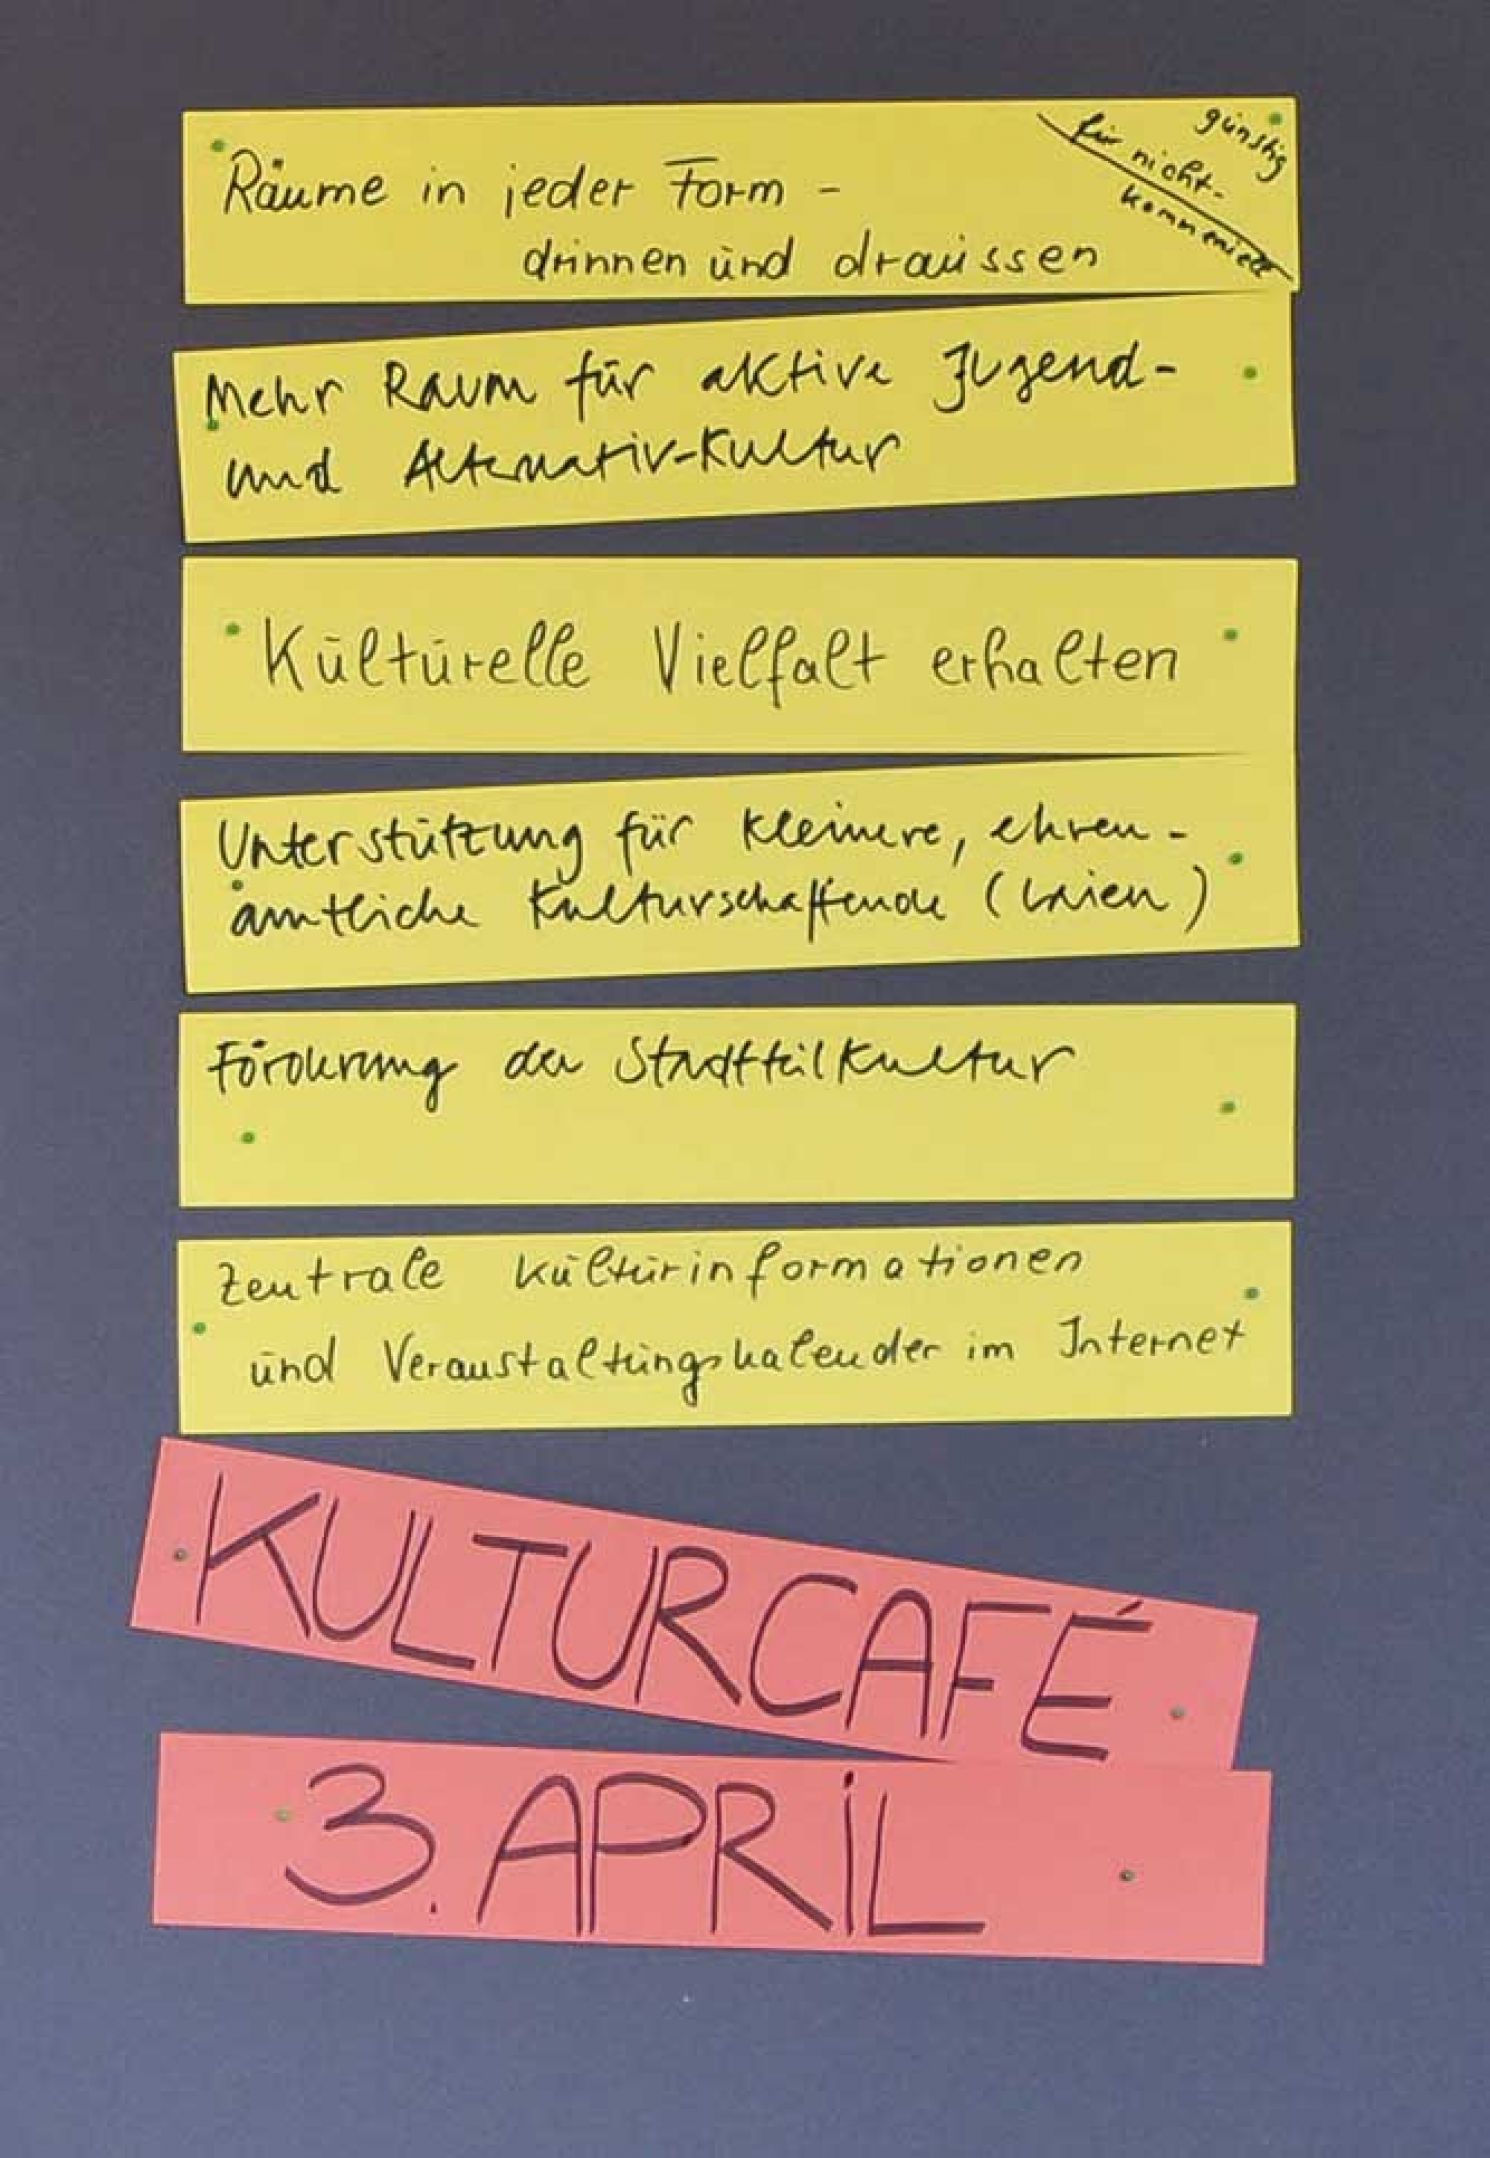 Räume in jeder Form -
drinnen und draussen
günstig
für nicht-
kommerziell
Mehr Raum für aktive Jugend-
und Alternativ-Kultur
Kulturelle Vielfalt erhalten
Unterstützung für kleinere, ehren-
amtliche Kulturschaffende (Laien)
Förderung der Stadtteilkultur
Zentrale Kulturinformationen
und Veranstaltungskalender im Internet
KULTURCAFÉ
3. APRiL